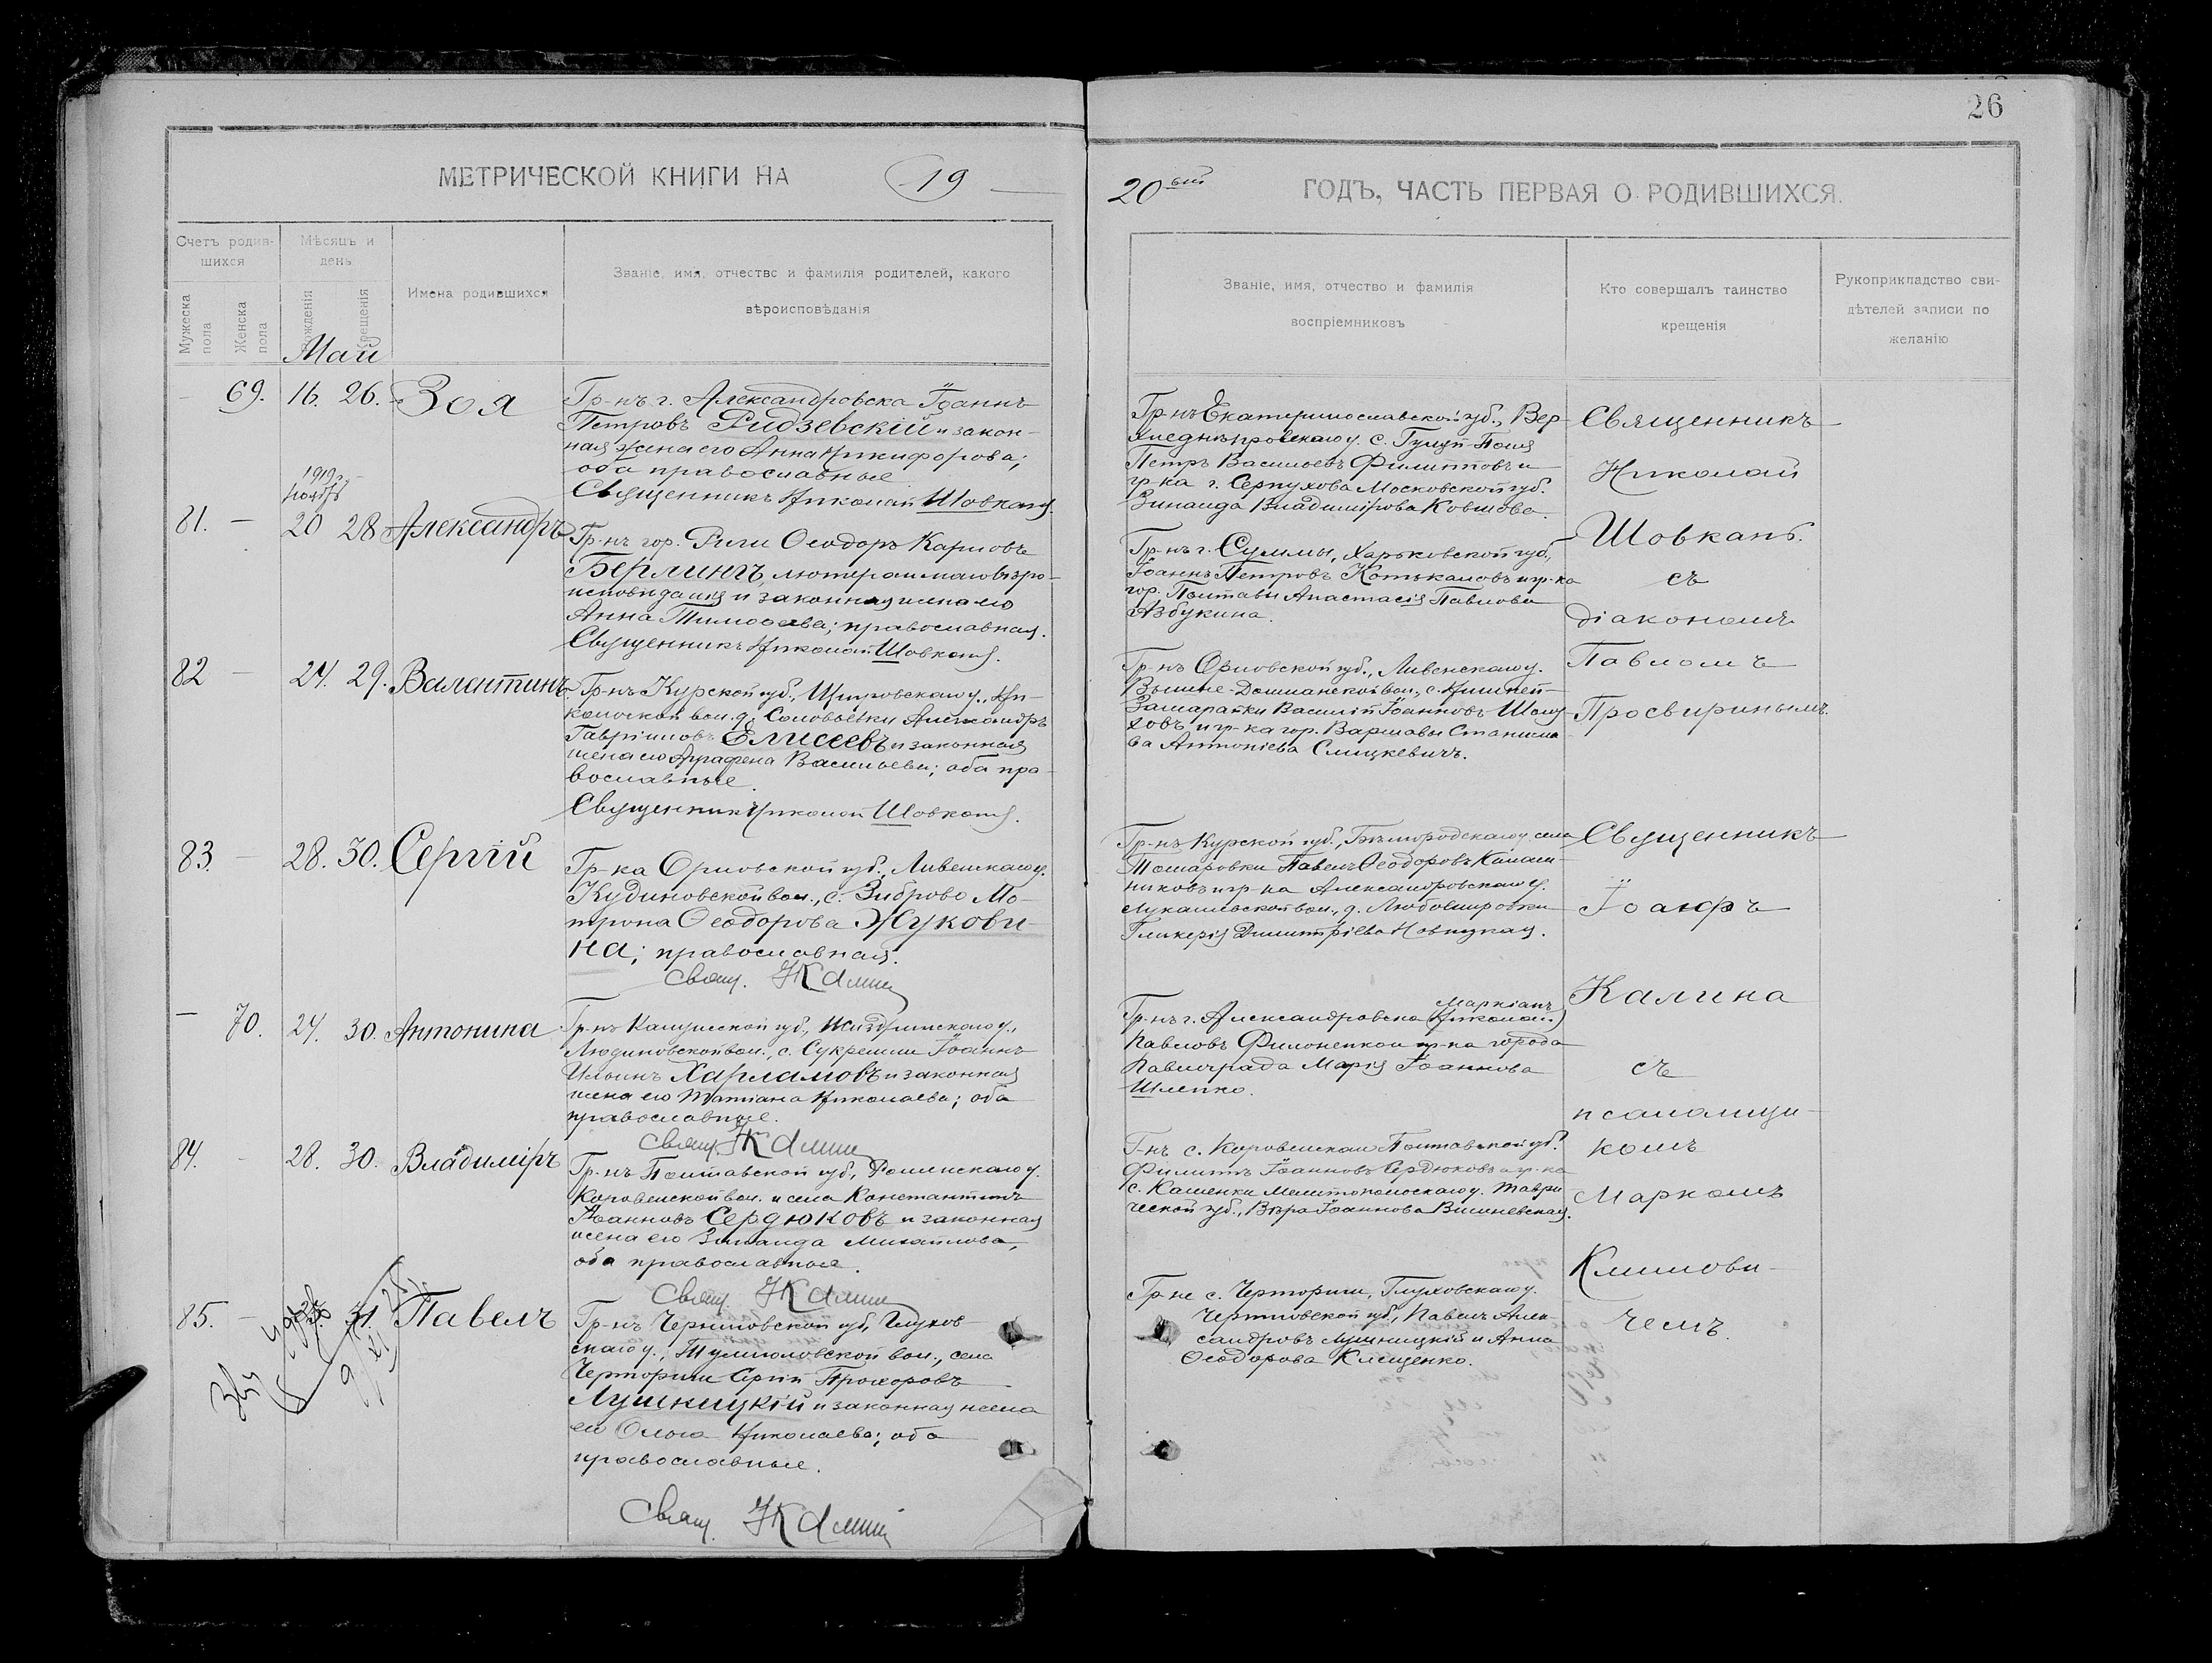 26
МЕТРИЧЕСКОЙ КНИГИ НА 19
20ый ГОДЪ, ЧАСТЬ ПЕРВАЯ О РОДИВШИХСЯ.
Счетъ родив-
шихся
Мужеска пола
Женска пола
Мѣсяцъ и
день
Рожденія
Крещенія
Имена родившихся
Званіе, имя, отчество и фамилія родителей, какого
вѣроисповѣданія
Званіе, имя, отчество и фамилія
воспріемниковъ
Кто совершалъ таинство
крещенія
Рукоприкладство сви-
дѣтелей записи по
желанію
Май
69. 16. 26. Зоя
Гр-нъ г. Александровска Іоаннъ
Петровъ Ридзевскій и закон-
ная жена его Анна Никифорова;
оба православные
Священникъ Николай Шовкань
Гр-нъ Екатеринославской губ., Вер-
хнеднѣпровскаго у. с.
Петръ Васильевъ Филиптовъ и
гр-ка г. Серпухова Московской губ.
Зинаида Владимірова Ковшова.
1919 г.
Ноябрь
81. — 20 28 Александръ
Гр-нъ гор. Риги Ѳеодоръ Карловъ
Берлингъ, лютеранскаго вѣро-
исповѣданія и законная жена его
Анна Тимоѳеева; православная.
Священникъ Николай Шовкань.
Гр-нъ г. Суммы, Харьковской губ,
Іоаннъ Петровъ Котькаловъ и гр-ка
гор. Полтавы Анастасія Павлова
Азбукина.
82 — 24. 29. Валентинъ.
Гр-нъ Курской губ., Щигровскаго у., Ни-
кольской вол. д. Соловьевки Александръ
Гавріиловъ Елисеевъ и законная
жена его Аграфена Васильева; оба пра-
вославные.
Священникъ Николай Шовкань.
Гр-нъ Орловской губ., Ливенскаго у.
вол., с.
Василій Іоанновъ
и гр-ка гор. Варшавы Станисла
ва Антоніева Слицкевичъ.
83 — 28. 30. Сергій
Гр-ка Орловской губ., Ливенскаго у.
Кудиновской вол., с. Зиброво Мо-
трона Ѳеодорова Жукови-
на; православная.
Свящ. І Калина
Гр-нъ Курской губ., Бѣлгородскаго у. села
Томаровки Павелъ Ѳеодоровъ
никовъ и гр-ка Александровскаго у.
Лукашевской вол., д. Любомировки
Гликерія Димитріева Новицкая.
— 70. 24. 30. Антонина
Гр-нъ Калужской губ., Жиздринскаго у.,
Людиновской вол., с. Сукремли Іоаннъ
Ильинъ Харламовъ и законная
жена его Татіана Николаева; оба
православные.
Свящ. І Калина
Гр-нъ г. Александровска (Николай) Маркіанъ
Павловъ Филоненко и гр-ка города
Павлограда Марія Іоаннова
Шлепко.
84. — 28. 30. Владиміръ
Гр-нъ Полтавской губ., Роменскаго у.
Коровенской вол. и села Константинъ
Іоанновъ Сердюковъ и законная
жена его Зинаида Михаилова,
оба православные.
Свящ. І Калина
Г-нъ с. Коровенская Полтавской губ.
Филиппъ Іоанновъ Сердюковъ и гр-ка
с. Каменки Мелитопольскаго у. Таври
ческой губ., Вѣра Іоаннова Вишневская.
85. — 31. Павелъ
Гр-нъ Черниговской губ, Глухов-
скаго у., Тулиголовской вол., села
Черториги Сергій Прохоровъ
Лушницкій и законная жена
его Ольга Николаева; оба
православные.
Свящ. І Калина
Гр-не с. Черториги, Глуховскаго у.
Черниговской губ., Павелъ Алек-
сандровъ Лушницкій и Анна
Ѳеодорова Клещенко.
Священникъ
Николай
Шовкань.
съ
діакономъ
Павломъ
Просвиринымъ.
Священникъ
Іоаннъ
Калина
съ
псаломщи-
комъ
Маркомъ
Климови-
чемъ.